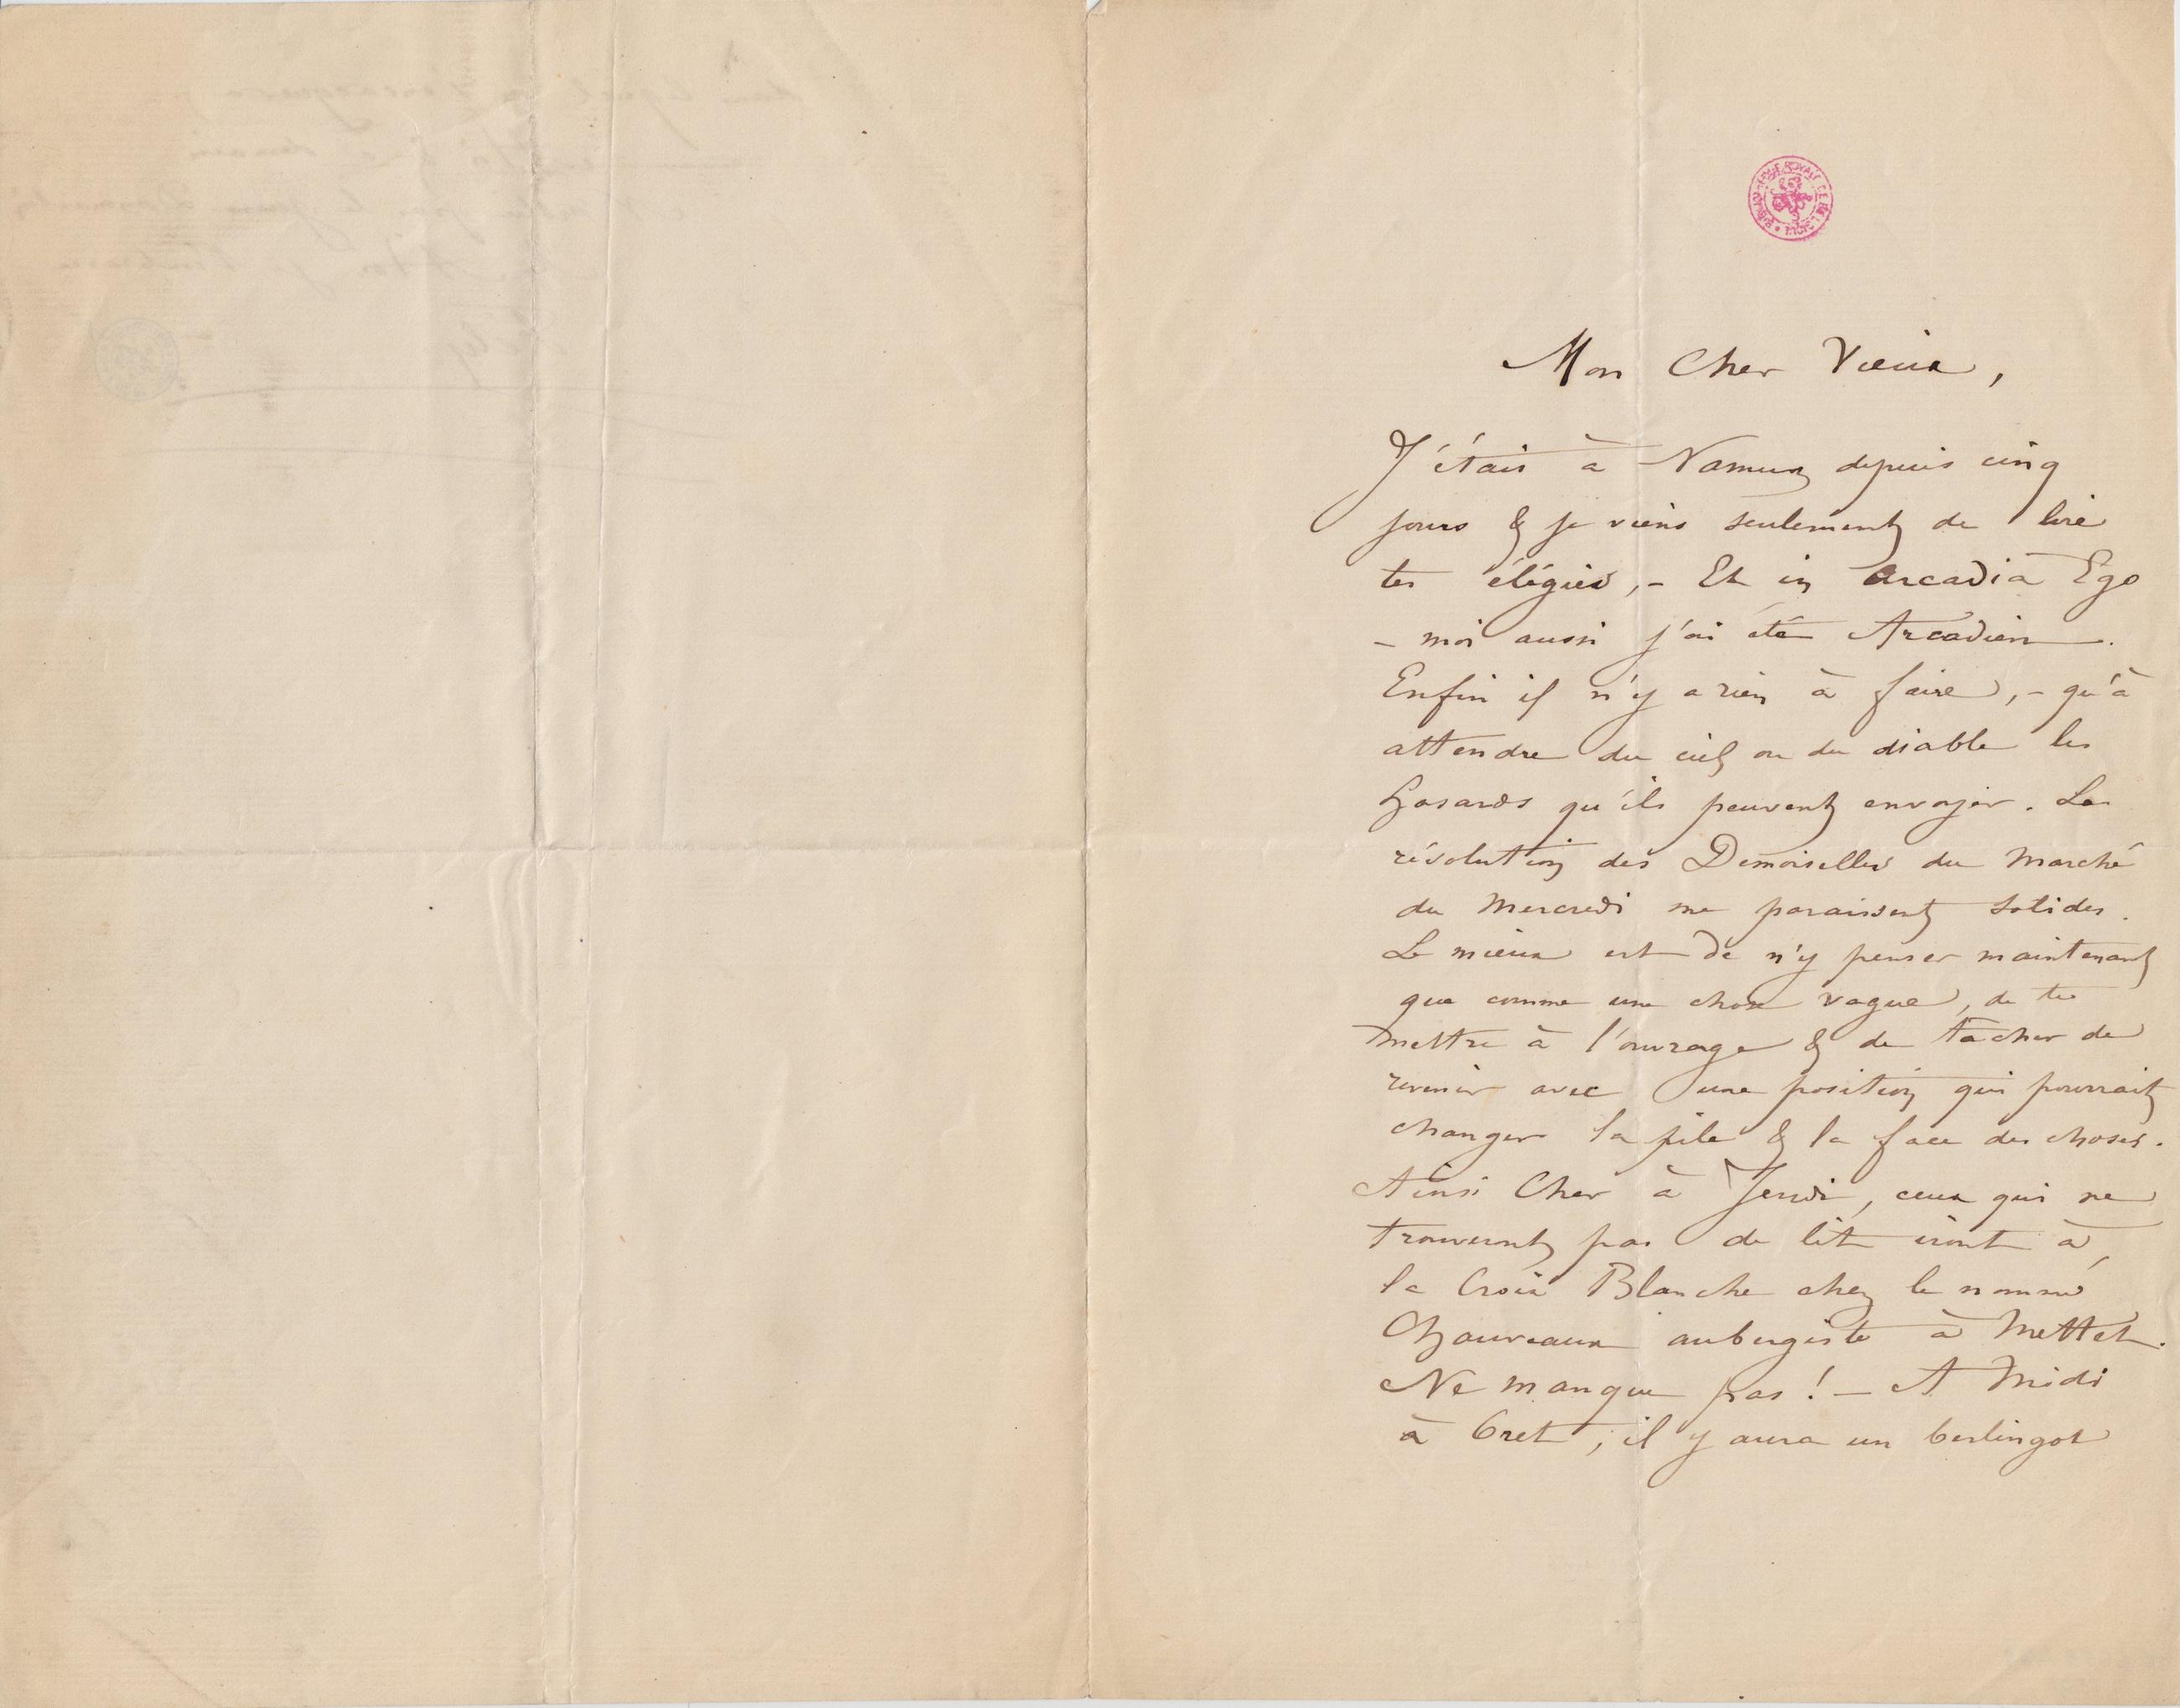 Mon Cher Vieux,
J'étais à Namur depuis cinq
jours & je viens seulement de lire
tes élégies, - Et in Arcadia Ego
- moi aussi j'ai été Arcadien.
Enfin il n'y a rien à faire, - qu'à
attendre du ciel ou du diable les
hasards qu'ils peuvent envoyer. Les
résolutions des Demoiselles du Marché
du Mercredi me paraissent solides.
Le mieux est de n'y penser maintenant
que comme une chose vague, de te
mettre à l'ouvrage & de tâcher de
revenir avec une position qui pourrait
changer la pile & la face des choses.
Ainsi Cher à Jeudi, ceux qui ne
trouveront pas de lit iront à
la Croix Blanche chez le nommé
aubergiste à Mettet.
Ne manque pas! - A Midi
à Oret, il y aura un berlingot
BIBLIOTHÈQUE ROYALE DE BELGIQUE